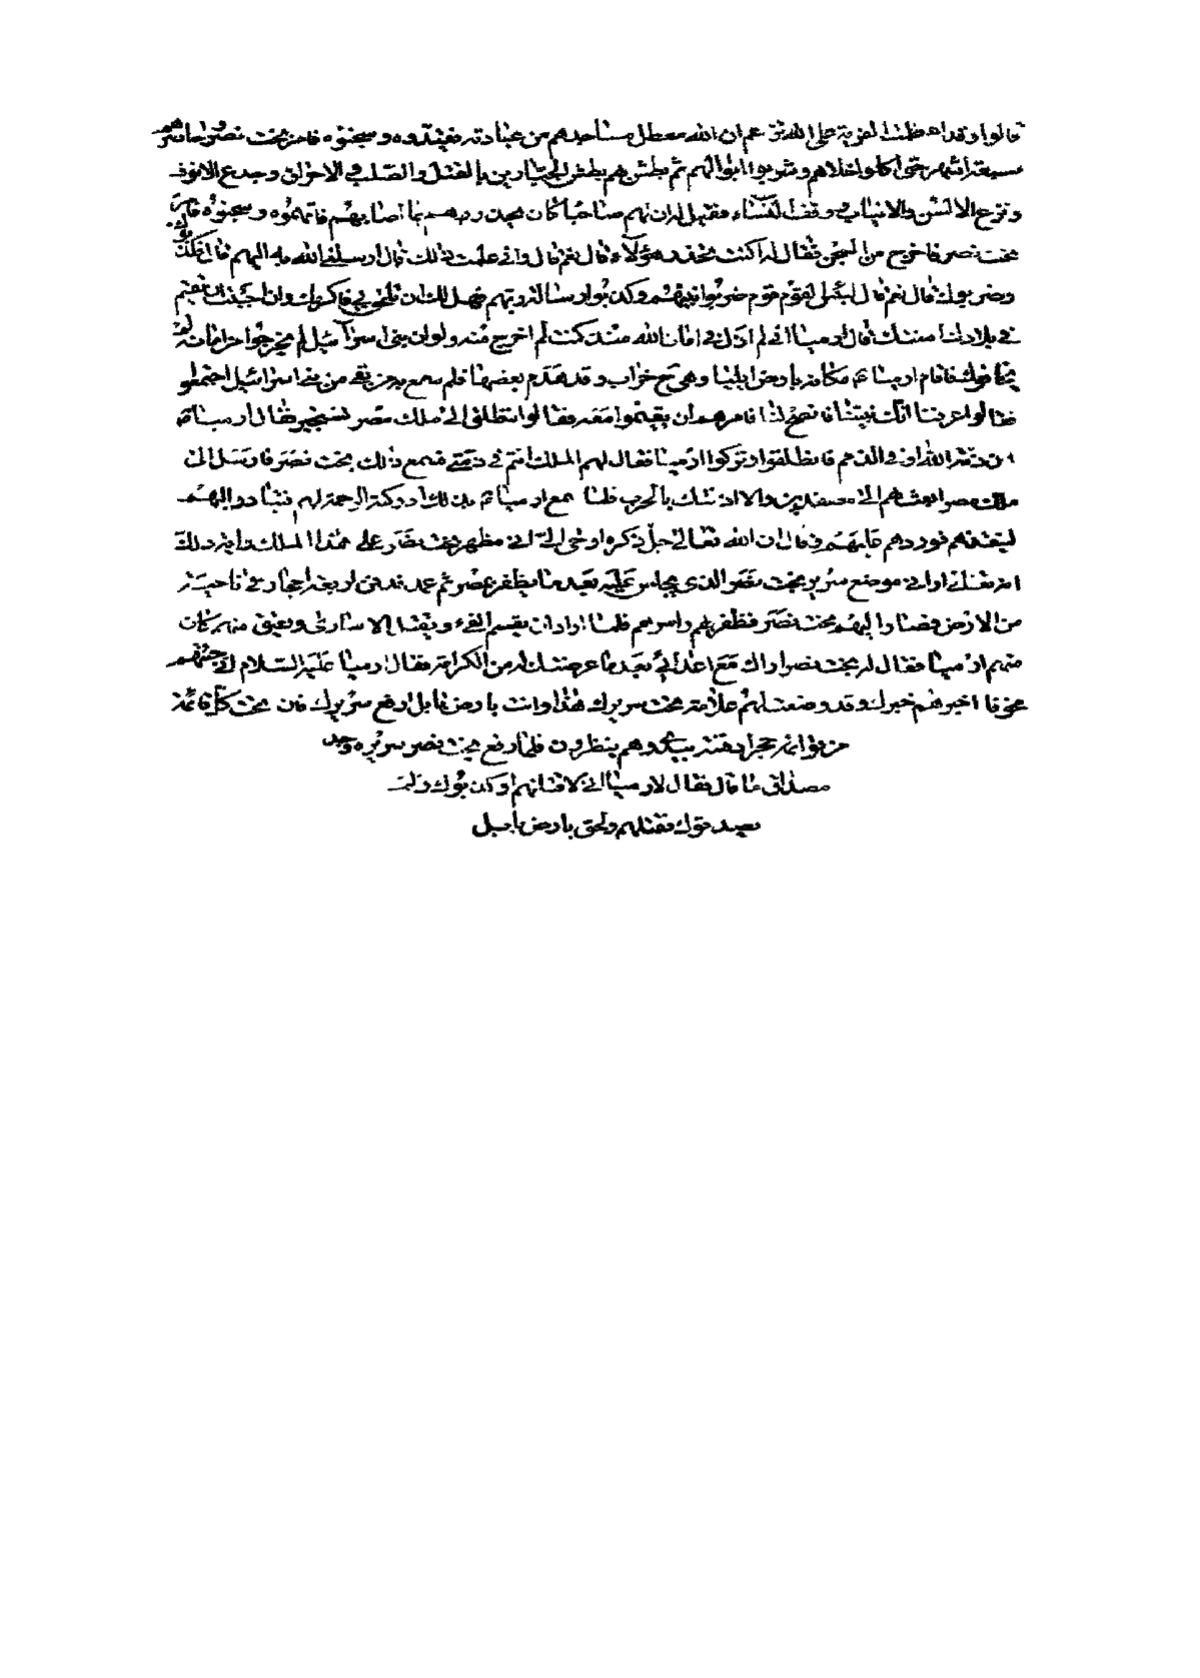 قالوا وقد اعظمت الفرية على الله تزعم ان الله معطل مساجدهم من عبادته فقيدوه وسجنوه فامر بخت نصر
سبعة اشهر حتى اكلوا خلاهم وشربوا ابوالهم ثم بطش بهم بطش الجبارين بالقتل والصلب والاحراق وجدع الانوف
ونزع الالسن والانياب ووقف النساء فقيل له ان لهم صاحبا كان يحذرهم بما اصابهم فاتهموه وسجنوه فامر
بخت نصر فاخرج من السجن فقال له اكنت تحذر هؤلاء قال نعم قال واني علمت ذلك قال ارسلني الله به اليهم قال فكذبوك
وضربوك قال نعم قال لبئس القوم قوم ضربوا نبيهم وكذبوا رسالة ربهم فهل لك ان تلحق بي فاكرمك وان احببت ان تقيم
في بلادك امنتك قال ارميا اني لم ازل في امان الله منذ كنت لم اخرج منه ولو ان بني اسرائيل لم يخرجوا من امانه لم
يخافوك فاقام ارميا مكانه بارض ايليا وهي خراب وقد هدم بعضها فلم سمع به من بقي من بني اسرائيل اجتمعوا
فقالوا عرفنا انك نبينا فانصح لنا فامرهم ان يقيموا معه فقالوا ننطلق الى ملك مصر نستجير فقال ارميا
ان ذمة الله اوفى الذمم فانطلقوا وتركوا ارميا فقال لهم الملك انتم في ذمتي فسمع ذلك بخت نصر فارسل الى
ملك مصر ابعث بهم الي مصفدين والا اذنتك بالحرب فلما سمع ارميا بذلك ادركته الرحمة لهم فبادر اليهم
لينقذهم فورد عليهم فقال ان الله تعالى جل ذكره اوحى الي اني مظهر بخت نصر على هذا الملك واية ذلك
انه تعالى اراني موضع سرير بخت نصر الذي يجلس عليه بعد ما يظفر بمصر ثم عمد فدفن اربعة احجار في ناحية
من الارض فسار اليهم بخت نصر فظفر بهم واسرهم فلما اراد ان يقسم الفيء ويقتل الاسارى ويعتق منهم كان
منهم ارميا فقال له بخت نصر اراك مع اعدائي بعد ما عرضت لك من الكرامة فقال ارميا عليه السلام اني جئتهم
مخوفا اخبرهم خبرك وقد وضعت لهم علامة تحت سريرك هذا وانت بارض بابل ارفع سريرك فان تحت كل قائمة
من قوائمه حجرا دفنته بيدي وهم ينظرون فلما رفع بخت نصر سريره وجد
مصداق ما قال فقال لارميا اني لاقتلهم اذ كذبوك ولم
يصدقوك فقتلهم ولحق بارض بابل